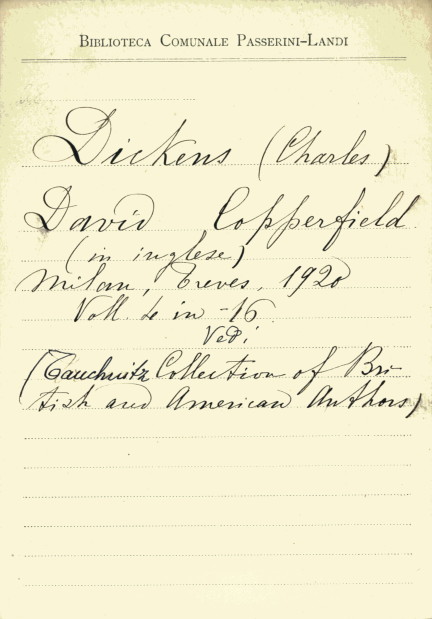 BIBLIOTECA COMUNALE PASSERINI-LANDI
Dickens (Charles)
David Copperfield
(in inglese)
Milan, Treves, 1920
Voll. in -16
Vedi
(Tauchnitz Collection of Bri-
tish and American Authors)